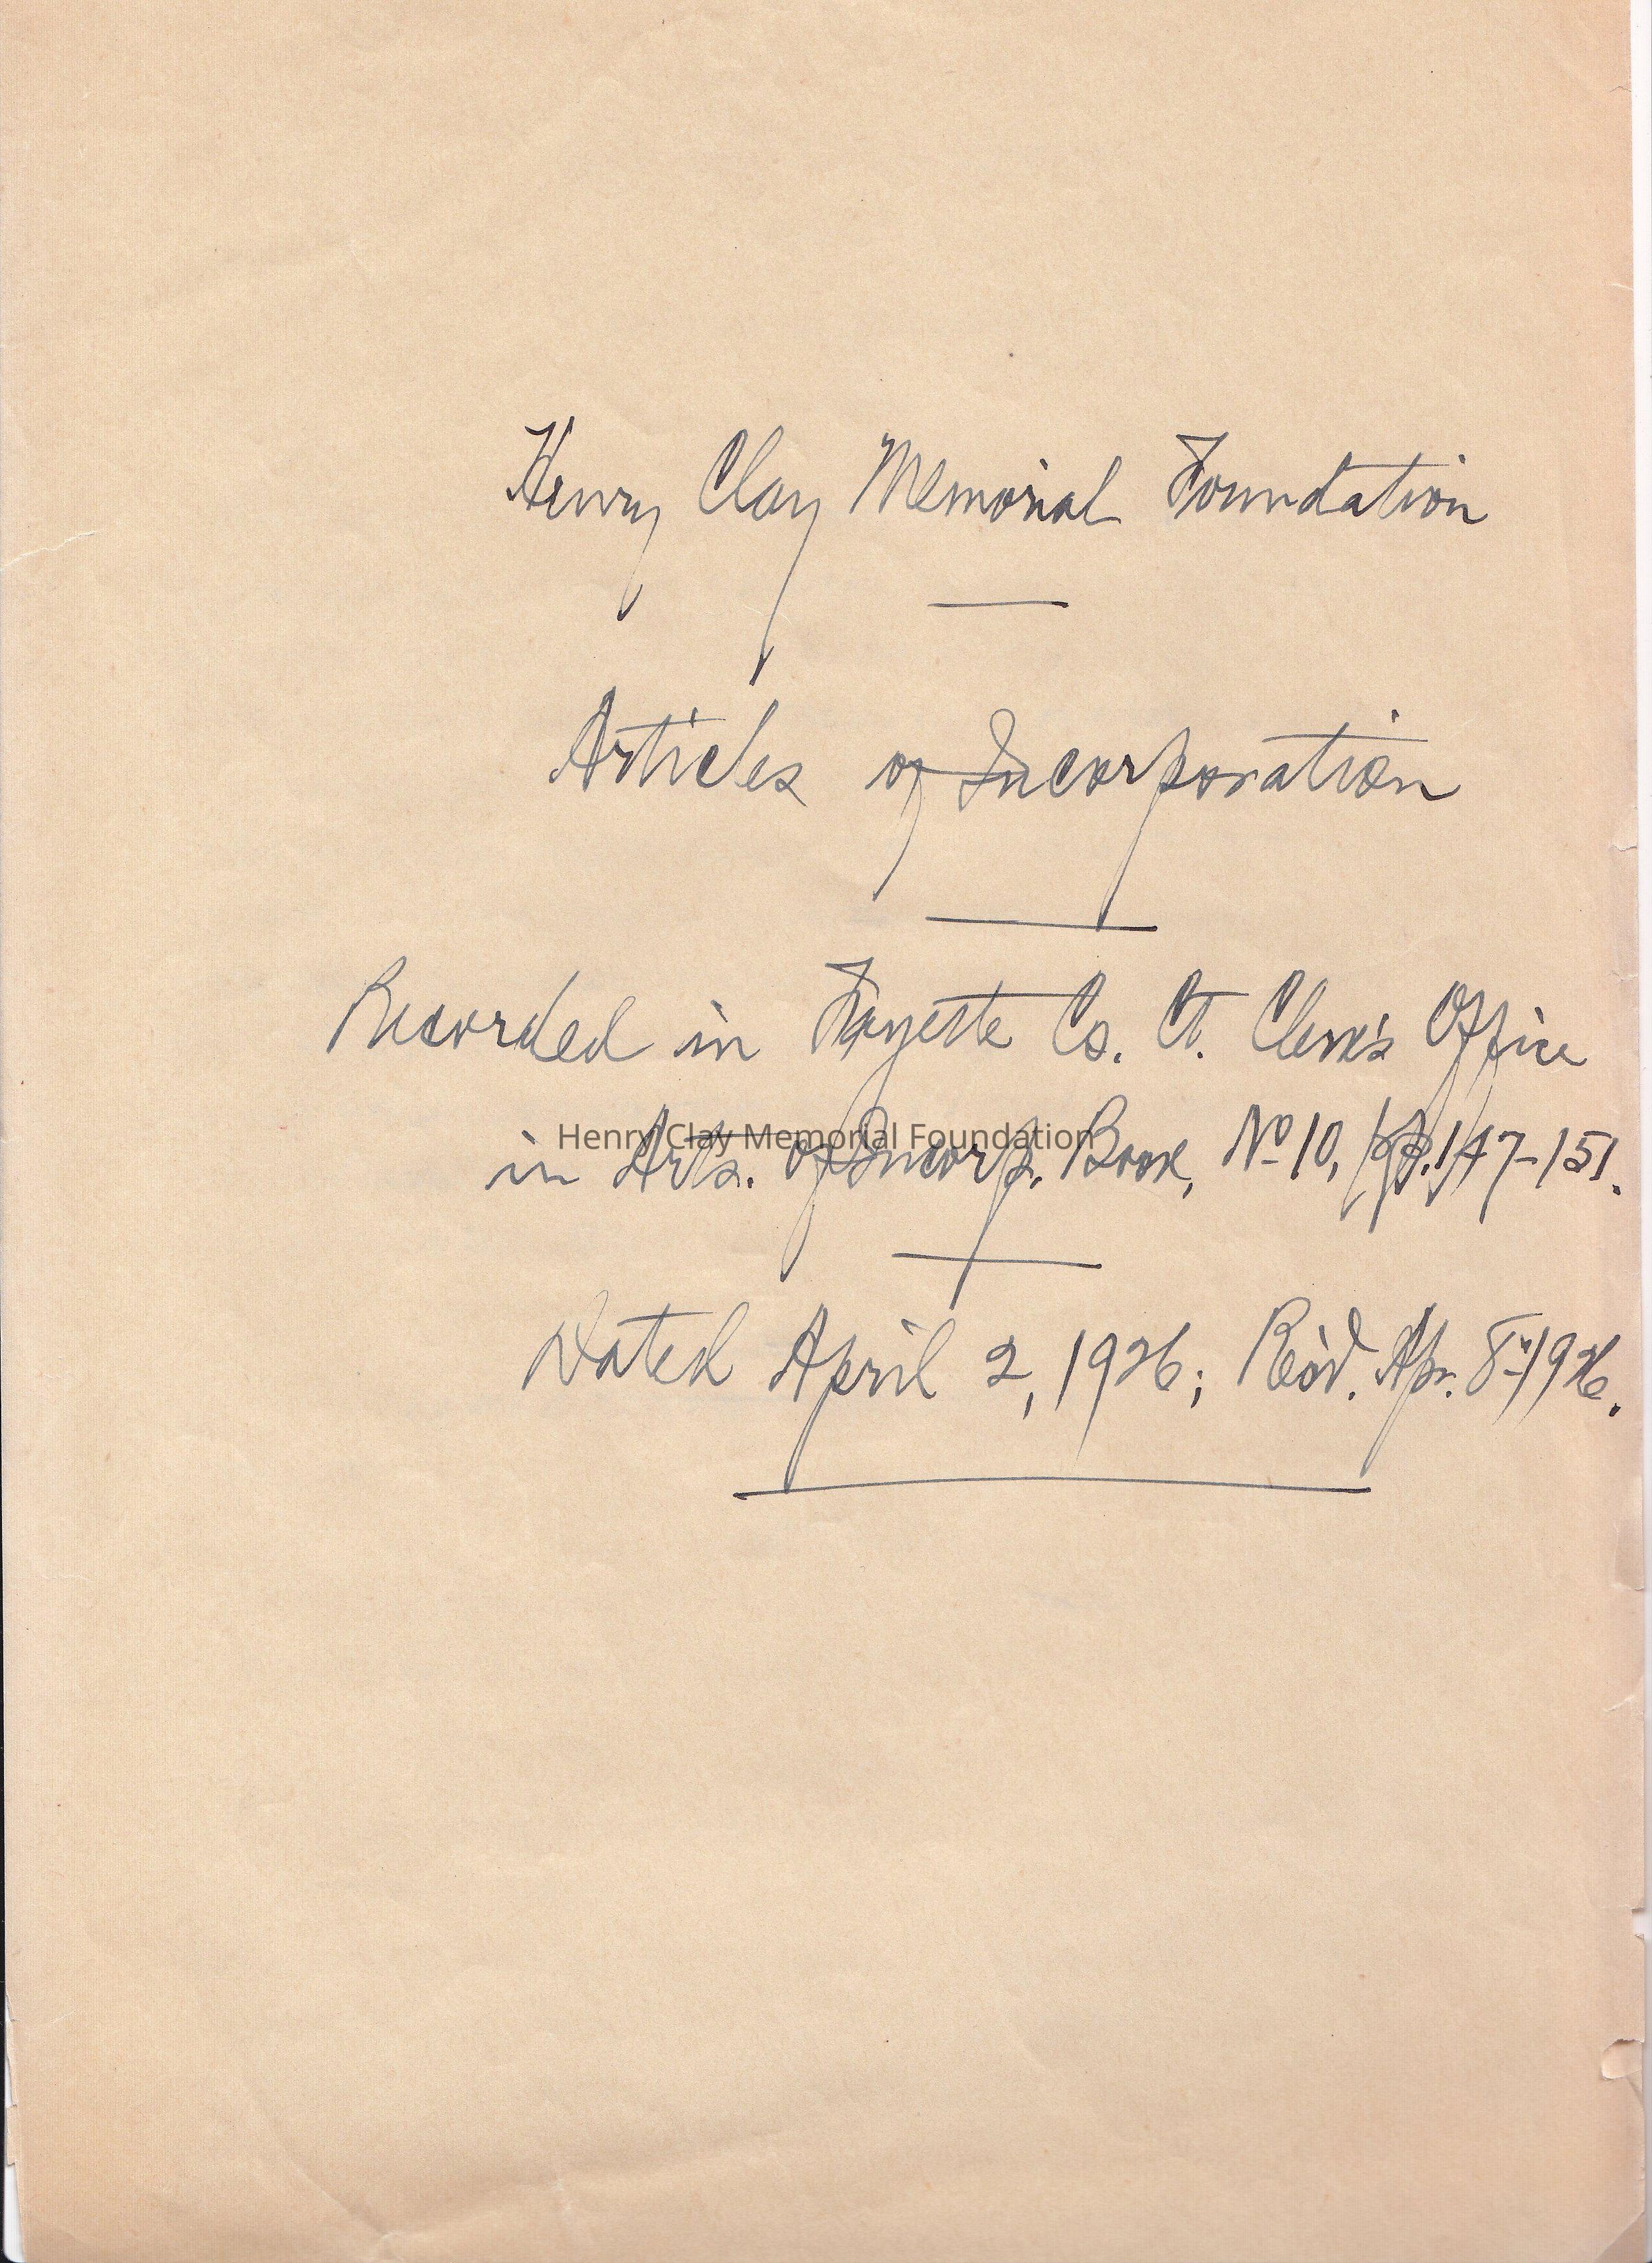 Henry Clay Memorial Foundation
Articles of Incorporation
Recorded in Fayette Co. Ct. Clerk's Office
Henry Clay Memorial Foundation
in Arts. of Incorp. Book, No 10, pp. 147-151.
Dated April 2, 1926; Rec'd. Apr. 8-1926.